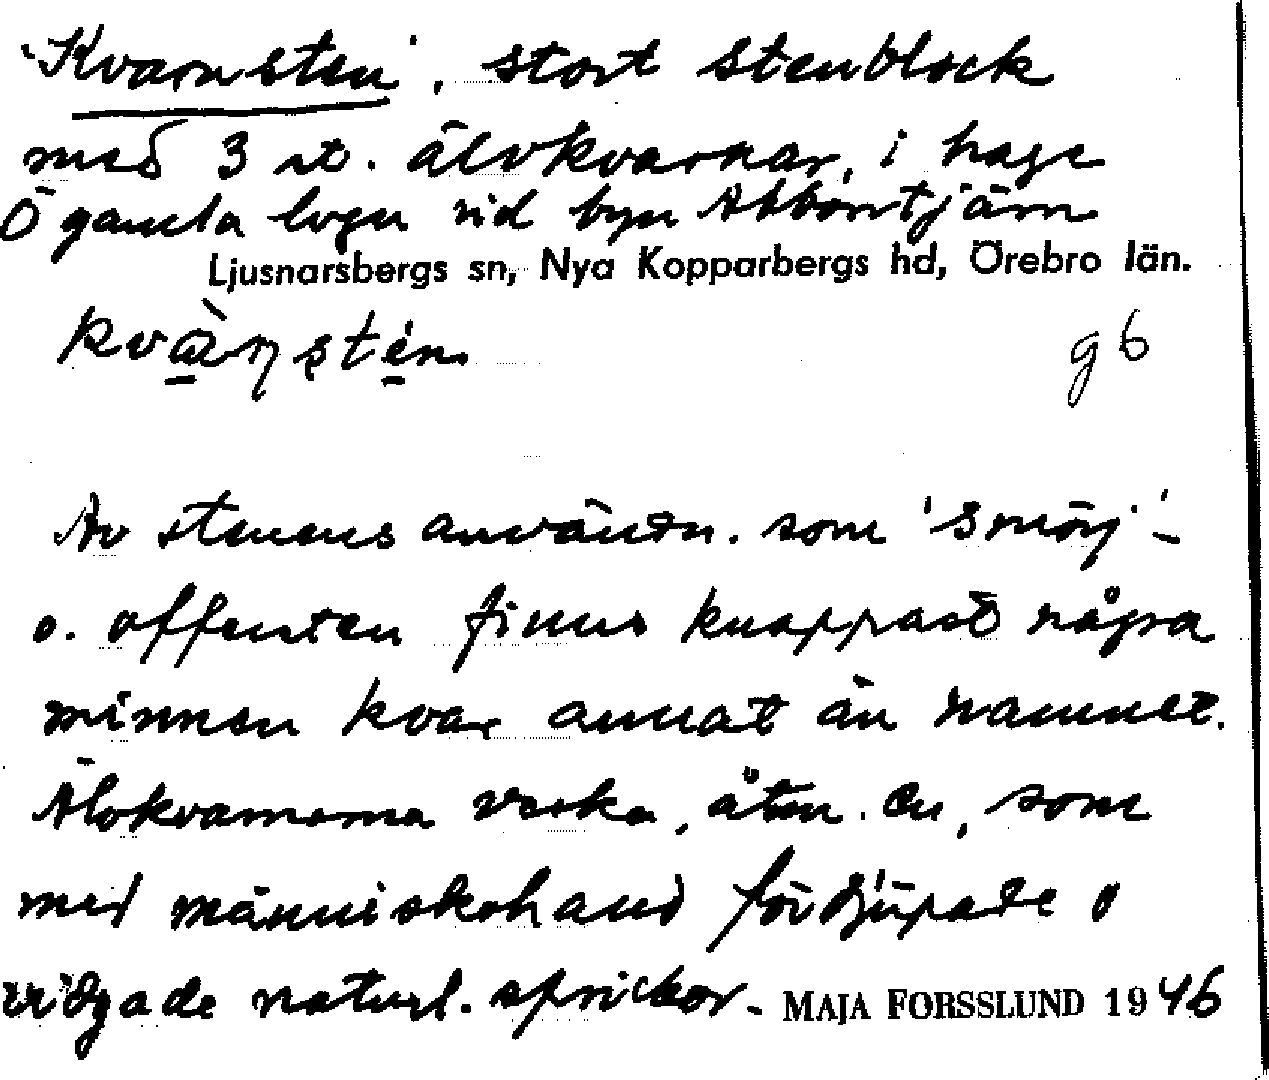 'Kvarnsten', stort stenblock
med 3 st. älvkvarnar, i hage
Ö gamla logen vid byn Abbortjärn
Ljusnarsbergs sn, Nya Kopparbergs hd, Örebro län.
kvàṇṣtén.
g 6
Av stenens användn. som 'smörj'-
o. offersten finns knappast några
minnen kvar annat än namnet.
Älvkvarnarna verka, åtm. en, som
med människohand fördjupade o
vidgade naturl. sprickor. MAJA FORSSLUND 1946